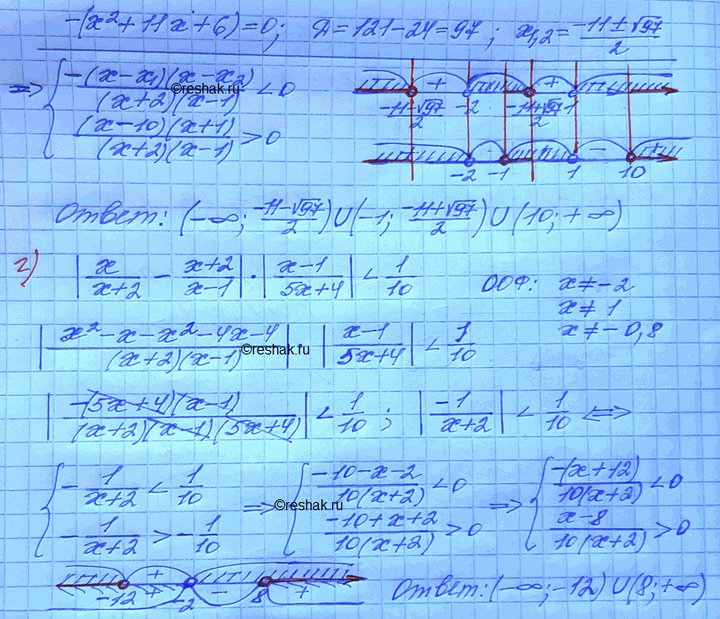 -(x²+11x+6)=0; Д=121-24=97; x₁,₂=(-11±√97)/2
=> { -(x-x₁)(x-x₂)/((x+2)(x-1)) < 0
(x-10)(x+1)/((x+2)(x-1)) > 0
©reshak.ru
+ +
(-11-√97)/2 -2 (-11+√97)/2 1
- +
-2 -1 1 10
Ответ: (-∞; (-11-√97)/2) ∪ (-1; (-11+√97)/2) ∪ (10; +∞)
2) |x/(x+2) - (x+2)/(x-1)| · |(x-1)/(5x+4)| < 1/10 ООФ: x≠-2
x≠1
x≠-0,8
|(x²-x-x²-4x-4)/((x+2)(x-1))| |(x-1)/(5x+4)| < 1/10
©reshak.ru
|-(5x+4)(x-1)/((x+2)(x-1)(5x+4))| < 1/10; |-1/(x+2)| < 1/10 <=>
{ -1/(x+2) < 1/10 => { (-10-x-2)/(10(x+2)) < 0 => { -(x+12)/(10(x+2)) < 0
-1/(x+2) > -1/10 (-10+x+2)/(10(x+2)) > 0 (x-8)/(10(x+2)) > 0
©reshak.ru
+ - +
-12 -2 8
Ответ: (-∞; -12) ∪ (8; +∞)